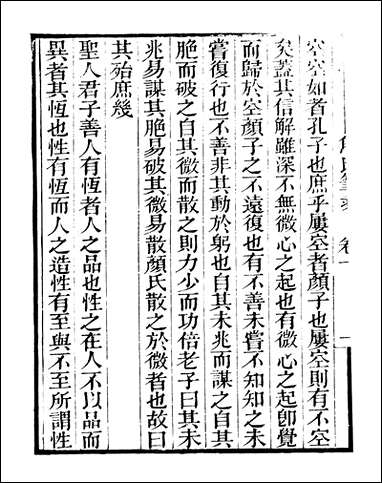 空空如者孔子也庶乎屢空者顏子也屢空則有不空
矣蓋其信解雖深不無微心之起也有微心之起卽覺
而歸於空顏子之不遠復也有不善未嘗不知知之未
嘗復行也不善非其動於躬也自其未兆而謀之自其
脃而破之自其微而散之則力少而功倍老子曰其未
兆易謀其脃易破其微易散顏氏散之於微者也故曰
其殆庶幾
聖人君子善人有恆者人之品也性之在人不以品而
異者其恆也性有恆而人之造性有至與不至所謂性
卷一
一